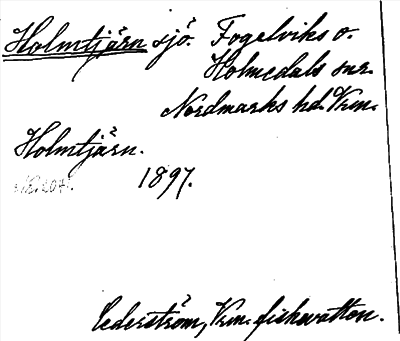 Holmtjärn sjö. Fogelviks o.
Holmedals snr.
Nordmarks hd. Vrm.
Holmtjärn.
1897.
Cederström, Vrm. fiskevatten.